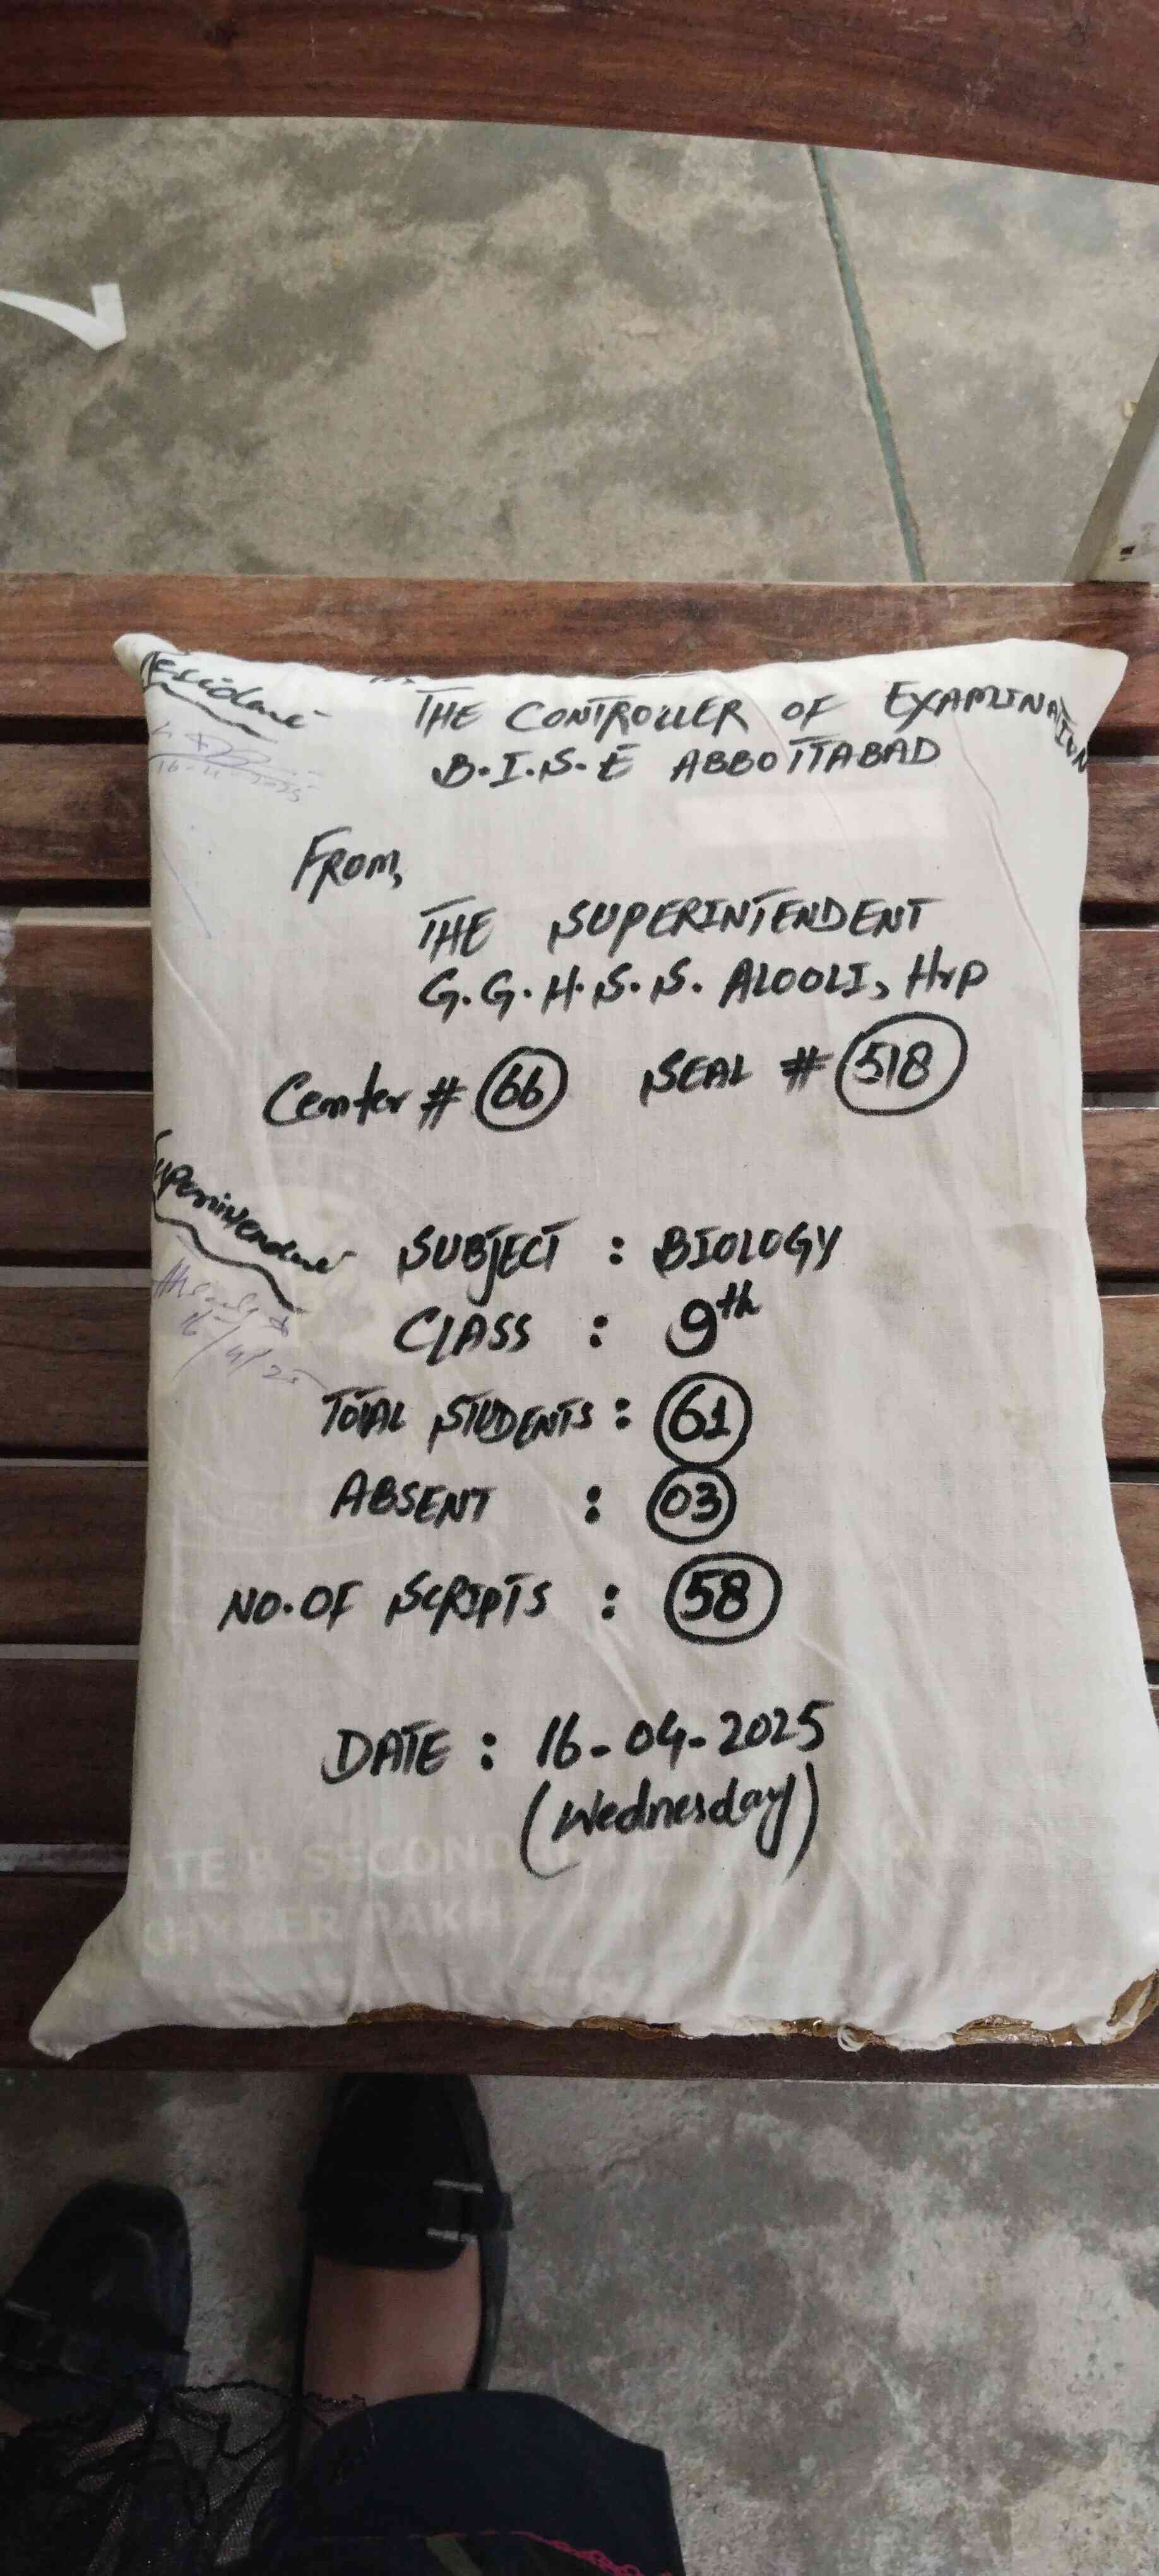 THE CONTROLLER OF EXAMINATION
B.I.S.E ABBOTTABAD
From,
THE SUPERINTENDENT
G.G.H.S.S. ALOOLI, Hrp
Center # 66 SEAL # 518
Superintendent
16/4/25
SUBJECT : BIOLOGY
CLASS : 9th
TOTAL STUDENTS : 61
ABSENT : 03
NO.OF SCRIPTS : 58
DATE : 16-04-2025
(Wednesday)
ATE & SECOND
KHYBER PAKH